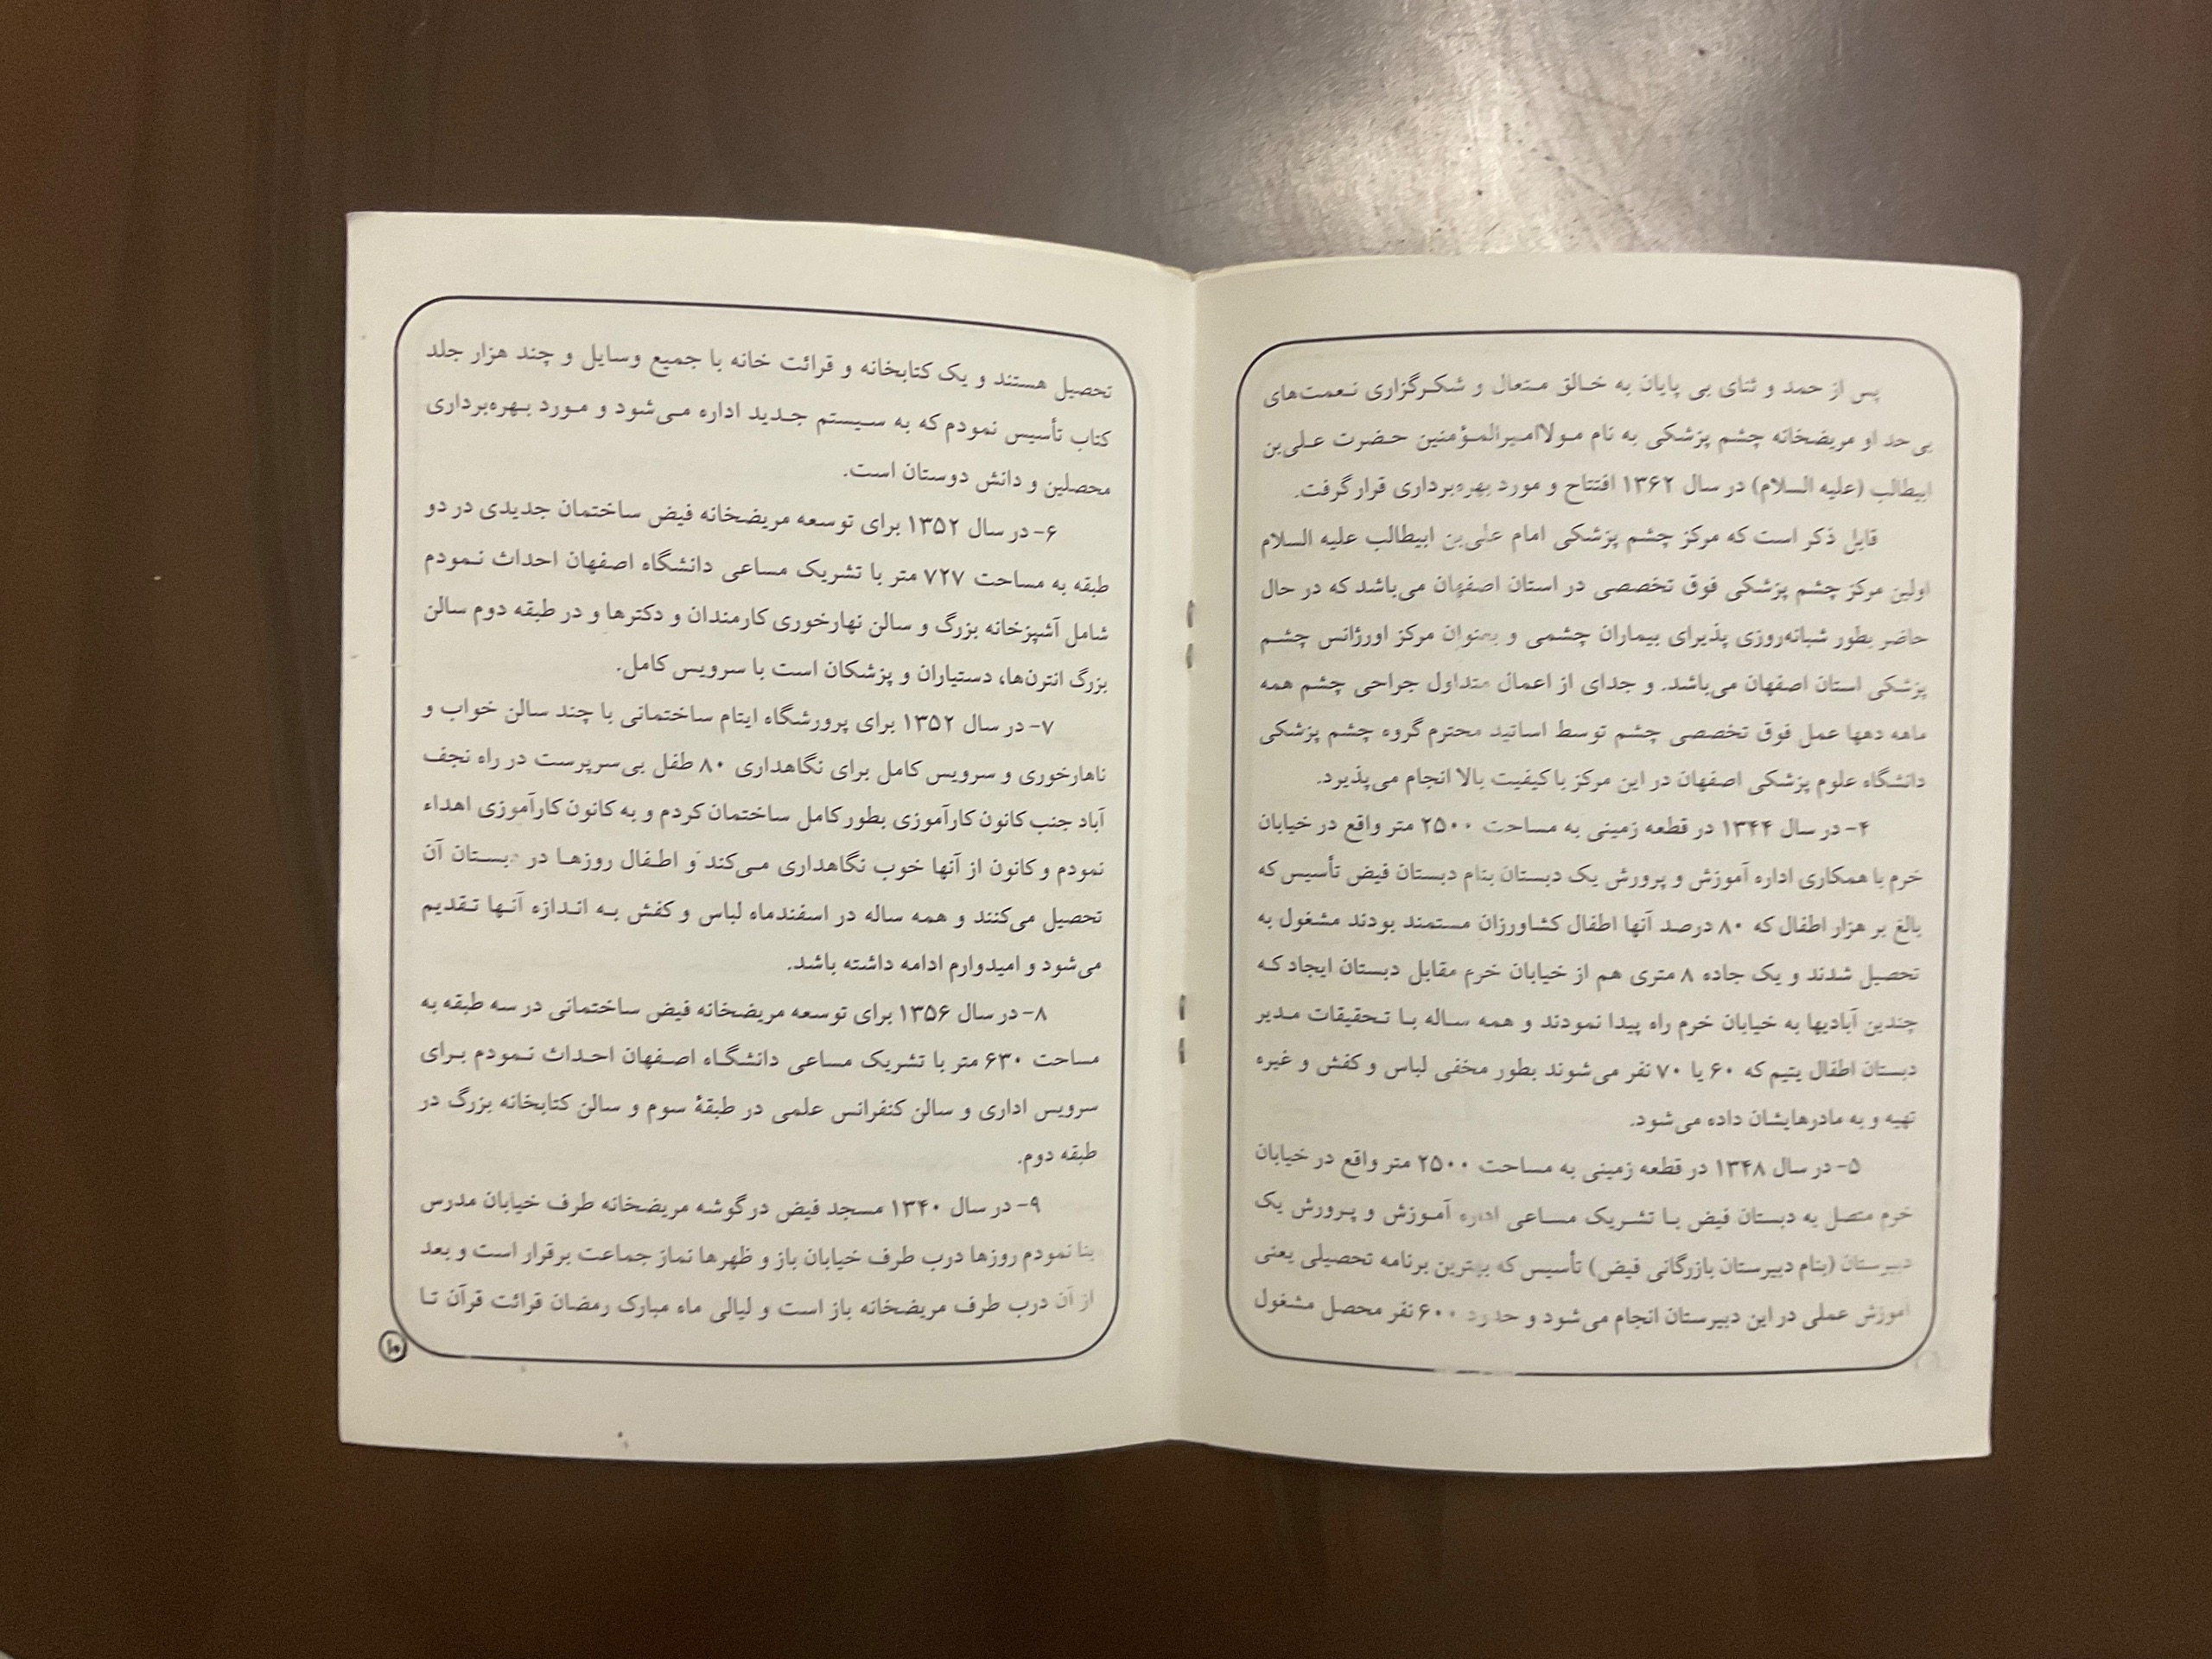 پس از حمد و ثنای بی پایان به خالق متعال و شکرگزاری نعمت‌های
بی‌حد او مریضخانه چشم پزشکی به نام مولاامیرالمؤمنین حضرت علی‌بن
ابیطالب (علیه السلام) در سال ۱۳۶۲ افتتاح و مورد بهره‌برداری قرار گرفت.
قابل ذکر است که مرکز چشم پزشکی امام علی‌بن ابیطالب علیه السلام
اولین مرکز چشم پزشکی فوق تخصصی در استان اصفهان می‌باشد که در حال
حاضر بطور شبانه‌روزی پذیرای بیماران چشمی و بعنوان مرکز اورژانس چشم
پزشکی استان اصفهان می‌باشد. و جدای از اعمال متداول جراحی چشم همه
ماهه دهها عمل فوق تخصصی چشم توسط اساتید محترم گروه چشم پزشکی
دانشگاه علوم پزشکی اصفهان در این مرکز با کیفیت بالا انجام می‌پذیرد.
۴- در سال ۱۳۴۴ در قطعه زمینی به مساحت ۲۵۰۰ متر واقع در خیابان
خرم با همکاری اداره آموزش و پرورش یک دبستان بنام دبستان فیض تأسیس که
بالغ بر هزار اطفال که ۸۰ درصد آنها اطفال کشاورزان مستمند بودند مشغول به
تحصیل شدند و یک جاده ۸ متری هم از خیابان خرم مقابل دبستان ایجاد که
چندین آبادیها به خیابان خرم راه پیدا نمودند و همه ساله با تحقیقات مدیر
دبستان اطفال یتیم که ۶۰ یا ۷۰ نفر می‌شوند بطور مخفی لباس و کفش و غیره
تهیه و به مادرهایشان داده می‌شود.
۵- در سال ۱۳۴۸ در قطعه زمینی به مساحت ۲۵۰۰ متر واقع در خیابان
خرم متصل به دبستان فیض با تشریک مساعی اداره آموزش و پرورش یک
دبیرستان (بنام دبیرستان بازرگانی فیض) تأسیس که بهترین برنامه تحصیلی یعنی
آموزش عملی در این دبیرستان انجام می‌شود و حدود ۶۰۰ نفر محصل مشغول
تحصیل هستند و یک کتابخانه و قرائت خانه با جمیع وسایل و چند هزار جلد
کتاب تأسیس نمودم که به سیستم جدید اداره می‌شود و مورد بهره‌برداری
محصلین و دانش دوستان است.
۶- در سال ۱۳۵۲ برای توسعه مریضخانه فیض ساختمان جدیدی در دو
طبقه به مساحت ۷۲۷ متر با تشریک مساعی دانشگاه اصفهان احداث نمودم
شامل آشپزخانه بزرگ و سالن نهارخوری کارمندان و دکترها و در طبقه دوم سالن
بزرگ انترن‌ها، دستیاران و پزشکان است با سرویس کامل.
۷- در سال ۱۳۵۲ برای پرورشگاه ایتام ساختمانی با چند سالن خواب و
ناهارخوری و سرویس کامل برای نگاهداری ۸۰ طفل بی‌سرپرست در راه نجف
آباد جنب کانون کارآموزی بطور کامل ساختمان کردم و به کانون کارآموزی اهداء
نمودم و کانون از آنها خوب نگاهداری می‌کند و اطفال روزها در دبستان آن
تحصیل می‌کنند و همه ساله در اسفندماه لباس و کفش به اندازه آنها تقدیم
می‌شود و امیدوارم ادامه داشته باشد.
۸- در سال ۱۳۵۶ برای توسعه مریضخانه فیض ساختمانی در سه طبقه به
مساحت ۶۳۰ متر با تشریک مساعی دانشگاه اصفهان احداث نمودم برای
سرویس اداری و سالن کنفرانس علمی در طبقهٔ سوم و سالن کتابخانه بزرگ در
طبقه دوم.
۹- در سال ۱۳۴۰ مسجد فیض در گوشه مریضخانه طرف خیابان مدرس
بنا نمودم روزها درب طرف خیابان باز و ظهرها نماز جماعت برقرار است و بعد
از آن درب طرف مریضخانه باز است و لیالی ماه مبارک رمضان قرائت قرآن تا
۱۰